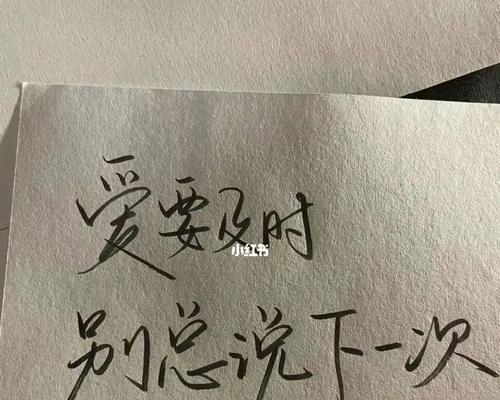 爱要及时
小红书
别总说下一次